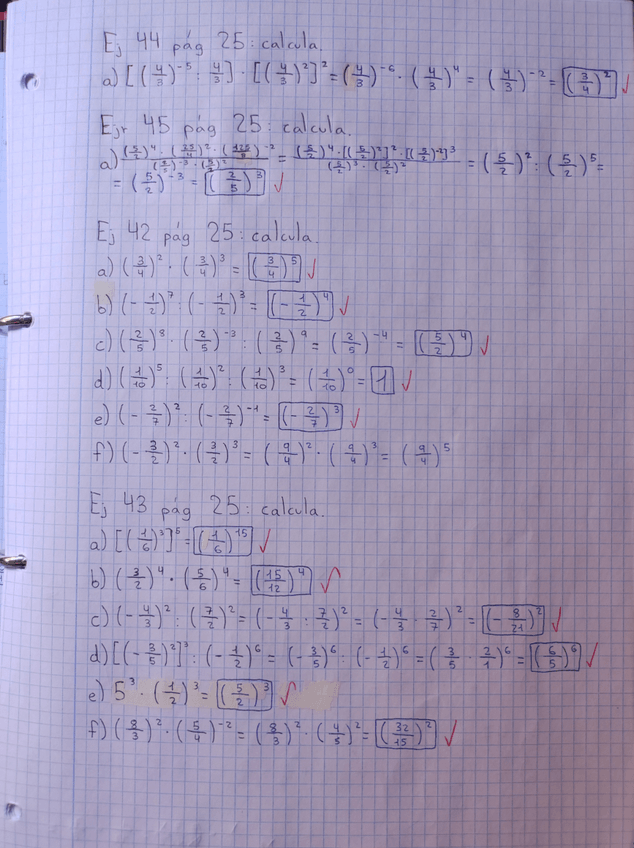 Ej 44 pág 25: calcula.
a) [(4/3)^-5 : 4/3] · [(4/3)^2]^2 = (4/3)^-6 · (4/3)^4 = (4/3)^-2 = (3/4)^2 ✓
Ejr 45 pág 25: calcula.
a) ((5/2)^4 · (25/4)^2 · (125/8)^-2)/((2/5)^-3 · (5/2)^2) = ((5/2)^4 · [(5/2)^2]^2 · [(5/2)^-2]^3)/((5/2)^3 · (5/2)^2) = (5/2)^2 : (5/2)^5 =
= (5/2)^-3 = (2/5)^3 ✓
Ej 42 pág 25: calcula.
a) (3/4)^2 · (3/4)^3 = (3/4)^5 ✓
b) (-1/2)^7 : (-1/2)^3 = (-1/2)^4 ✓
c) (2/5)^8 · (2/5)^-3 : (2/5)^9 = (2/5)^-4 = (5/2)^4 ✓
d) (1/10)^5 : (1/10)^2 : (1/10)^3 = (1/10)^0 = 1 ✓
e) (-2/7)^2 : (-2/7)^-1 = (-2/7)^3 ✓
f) (-3/2)^2 · (3/2)^3 = (9/4)^2 · (9/4)^3 = (9/4)^5
Ej 43 pág 25: calcula.
a) [(1/6)^3]^5 = (1/6)^15 ✓
b) (3/2)^4 · (5/6)^4 = (15/12)^4 ✓
c) (-4/3)^2 : (7/2)^2 = (-4/3 : 7/2)^2 = (-4/3 · 2/7)^2 = (-8/21)^2 ✓
d) [(-3/5)^2]^3 : (-1/2)^6 = (-3/5)^6 : (-1/2)^6 = (3/5 · 2/1)^6 = (6/5)^6 ✓
e) 5^3 · (1/2)^3 = (5/2)^3 ✓
f) (8/3)^2 · (5/4)^-2 = (8/3)^2 · (4/5)^2 = (32/15)^2 ✓